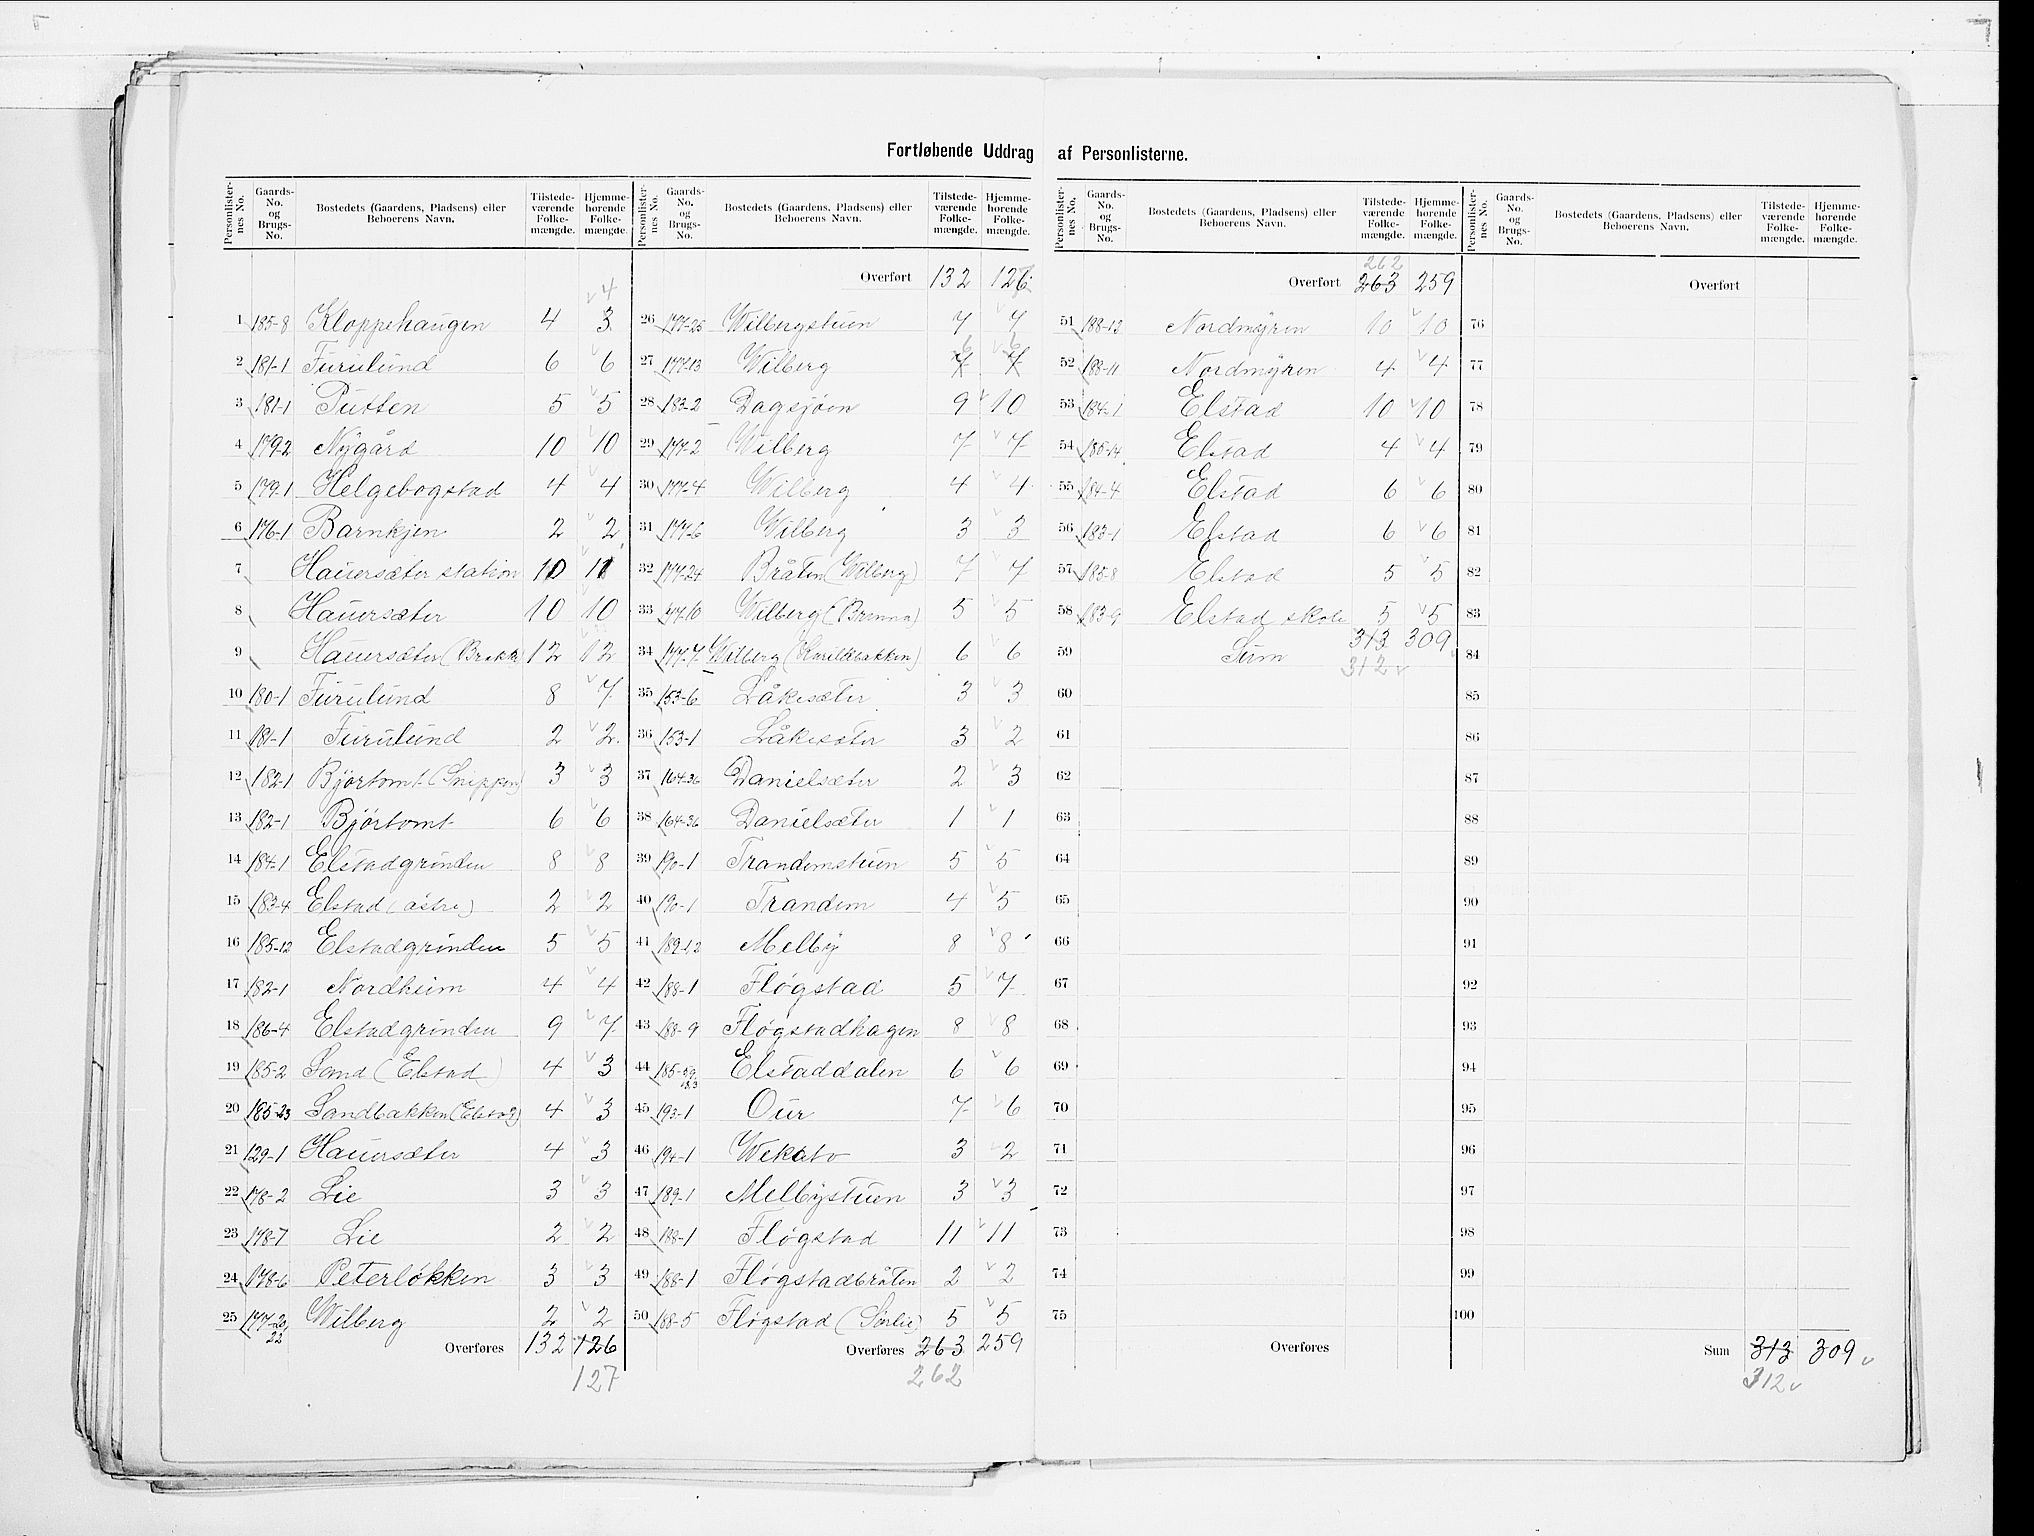 Fortløbende Uddrag af Personlisterne.
Personlisternes No. Gaards-No. og Brugs-No. Bostedets (Gaardens, Pladsens) eller Beboerens Navn. Tilstedeværende Folkemængde. Hjemmehörende Folkemængde.
4
1 185-8 Kloppehaugen 4 3
2 181-1 Furulund 6 6
3 181-1 Putten 5 5
4 179-2 Nygård 10 10
5 179-1 Helgebogstad 4 4
6 176-1 Barnkjen 2 2
7 Hauersæter station 10 11
8 Hauersæter 10 10
9 Hauersæter (Brakke) 12 12
10 180-1 Furulund 8 7
11 181-1 Furulund 2 2
12 182-1 Bjørtomt (Snippen) 3 3
13 182-1 Bjørtomt 6 6
14 184-1 Elstadgrinden 8 8
15 183-4 Elstad (østre) 2 2
16 185-12 Elstadgrinden 5 5
17 182-1 Nordheim 4 4
18 186-4 Elstadgrinden 9 7
19 185-2 Sand (Elstad) 4 3
20 185-23 Sandbakken (Elstad) 4 3
21 129-1 Hauersæter 4 3
22 178-2 Lie 3 3
23 178-7 Lie 2 2
24 178-6 Peterløkken 3 3
25 177-20, 22 Wilberg 2 2
Overføres 132 126
127
Personlisternes No. Gaards-No. og Brugs-No. Bostedets (Gaardens, Pladsens) eller Beboerens Navn. Tilstedeværende Folkemængde. Hjemmehörende Folkemængde.
Overført 132 126
26 177-25 Wilbergstuen 7 7
6 6
27 177-13 Wilberg 7 7
28 183-2 Dagsjøen 9 10
29 177-2 Wilberg 7 7
30 177-4 Wilberg 4 4
31 177-6 Wilberg 3 3
32 177-24 Bråten (Wilberg) 7 7
33 177-10 Wilberg (Brenna) 5 5
34 177-7 Wilberg 6 6
35 153-6 Låkesæter 3 3
36 153-1 Låkesæter 3 2
37 164-36 Danielsæter 2 3
38 164-36 Danielsæter 1 1
39 190-1 Trandemstuen 5 5
40 190-1 Trandem 4 5
41 189-1,2 Melby 8 8
42 188-1 Fløgstad 5 7
43 188-9 Fløgstadhagen 8 8
44 185-59, 183 Elstaddalen 6 6
45 193-1 Our 7 6
46 194-1 Wekato 3 2
47 189-1 Melbystuen 3 3
48 188-1 Fløgstad 11 11
49 188-1 Fløgstadbråten 2 2
50 188-5 Fløgstad (Sørlie) 5 5
Overføres 263 259
262
Personlisternes No. Gaards-No. og Brugs-No. Bostedets (Gaardens, Pladsens) eller Beboerens Navn. Tilstedeværende Folkemængde. Hjemmehörende Folkemængde.
262
Overført 263 259
51 188-12 Nordmyren 10 10
52 188-11 Nordmyren 4 4
53 184-1 Elstad 10 10
54 185-14 Elstad 4 4
55 184-4 Elstad 6 6
56 183-1 Elstad 6 6
57 185-8 Elstad 5 5
58 183-9 Elstad skole 5 5
59 Sum 313 309
312
60
61
62
63
64
65
66
67
68
69
70
71
72
73
74
75
Overføres
Personlisternes No. Gaards-No. og Brugs-No. Bostedets (Gaardens, Pladsens) eller Beboerens Navn. Tilstedeværende Folkemængde. Hjemmehörende Folkemængde.
Overført
76
77
78
79
80
81
82
83
84
85
86
87
88
89
90
91
92
93
94
95
96
97
98
99
100
Sum 313 309
312